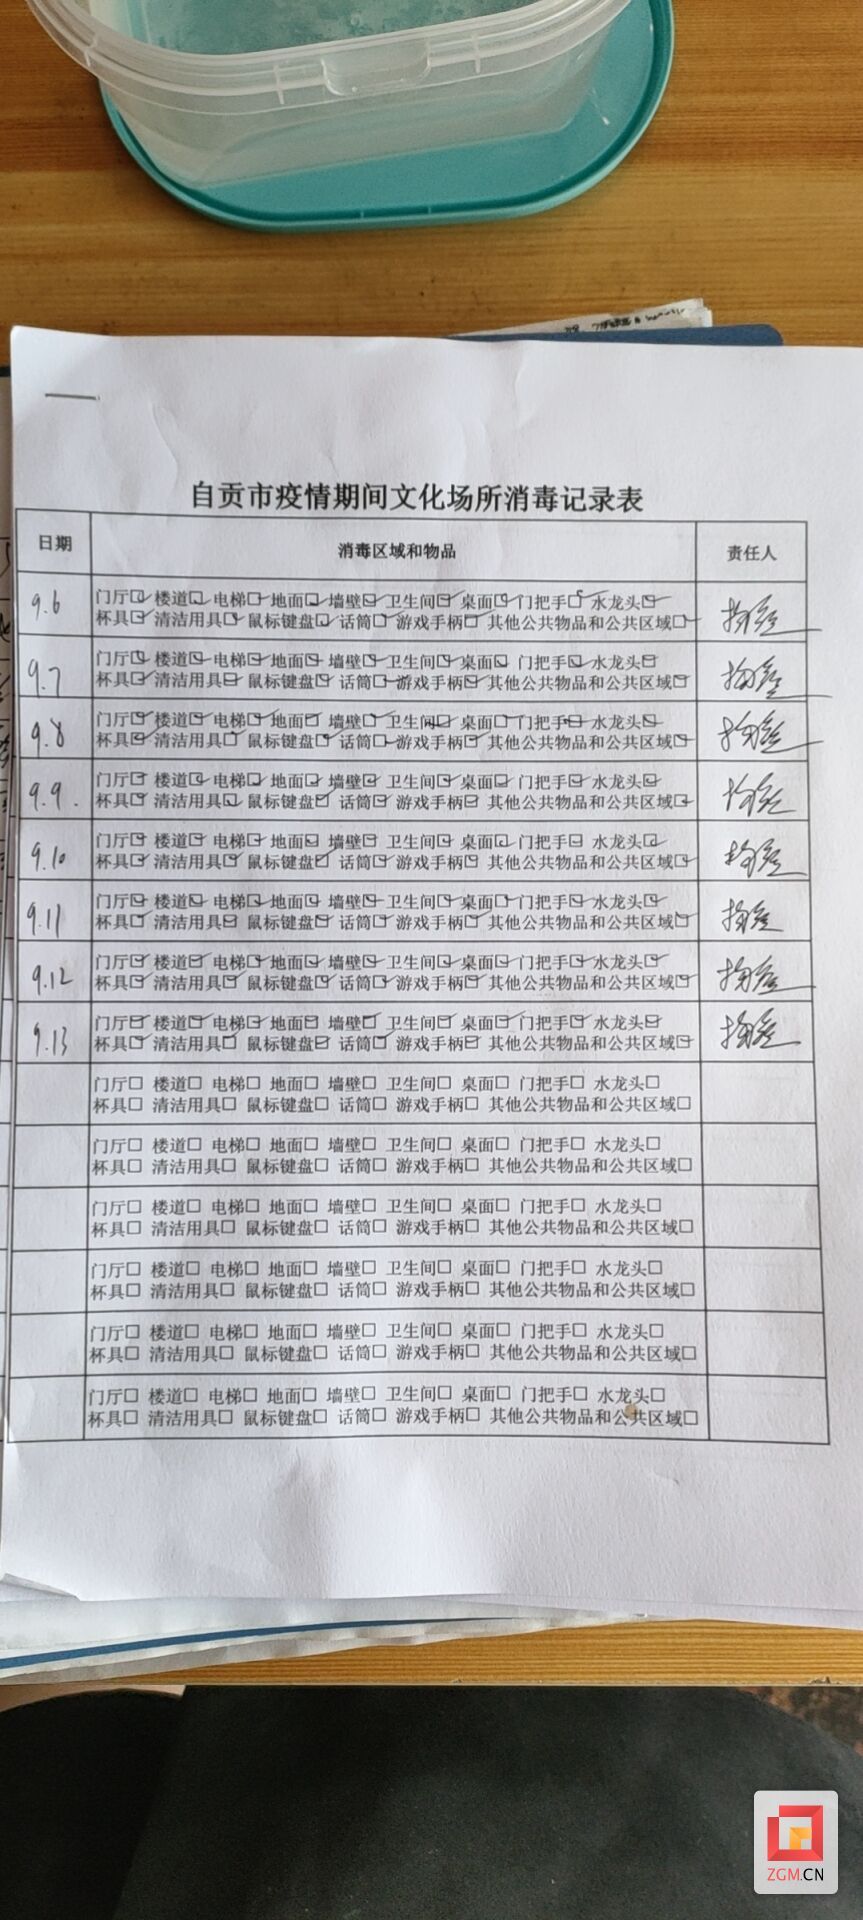 自贡市疫情期间文化场所消毒记录表
日期 消毒区域和物品 责任人
9.6 门厅☑ 楼道☑ 电梯☑ 地面☑ 墙壁☑ 卫生间☑ 桌面☑ 门把手☑ 水龙头☑
杯具☑ 清洁用具☑ 鼠标键盘☑ 话筒☑ 游戏手柄☑ 其他公共物品和公共区域☑
9.7 门厅☑ 楼道☑ 电梯☑ 地面☑ 墙壁☑ 卫生间☑ 桌面☑ 门把手☑ 水龙头☑
杯具☑ 清洁用具☑ 鼠标键盘☑ 话筒☑ 游戏手柄☑ 其他公共物品和公共区域☑
9.8 门厅☑ 楼道☑ 电梯☑ 地面☑ 墙壁☑ 卫生间☑ 桌面☑ 门把手☑ 水龙头☑
杯具☑ 清洁用具☑ 鼠标键盘☑ 话筒☑ 游戏手柄☑ 其他公共物品和公共区域☑
9.9. 门厅☑ 楼道☑ 电梯☑ 地面☑ 墙壁☑ 卫生间☑ 桌面☑ 门把手☑ 水龙头☑
杯具☑ 清洁用具☑ 鼠标键盘☑ 话筒☑ 游戏手柄☑ 其他公共物品和公共区域☑
9.10 门厅☑ 楼道☑ 电梯☑ 地面☑ 墙壁☑ 卫生间☑ 桌面☑ 门把手☑ 水龙头☑
杯具☑ 清洁用具☑ 鼠标键盘☑ 话筒☑ 游戏手柄☑ 其他公共物品和公共区域☑
9.11 门厅☑ 楼道☑ 电梯☑ 地面☑ 墙壁☑ 卫生间☑ 桌面☑ 门把手☑ 水龙头☑
杯具☑ 清洁用具☑ 鼠标键盘☑ 话筒☑ 游戏手柄☑ 其他公共物品和公共区域☑
9.12 门厅☑ 楼道☑ 电梯☑ 地面☑ 墙壁☑ 卫生间☑ 桌面☑ 门把手☑ 水龙头☑
杯具☑ 清洁用具☑ 鼠标键盘☑ 话筒☑ 游戏手柄☑ 其他公共物品和公共区域☑
9.13 门厅☑ 楼道☑ 电梯☑ 地面☑ 墙壁☑ 卫生间☑ 桌面☑ 门把手☑ 水龙头☑
杯具☑ 清洁用具☑ 鼠标键盘☑ 话筒☑ 游戏手柄☑ 其他公共物品和公共区域☑
门厅□ 楼道□ 电梯□ 地面□ 墙壁□ 卫生间□ 桌面□ 门把手□ 水龙头□
杯具□ 清洁用具□ 鼠标键盘□ 话筒□ 游戏手柄□ 其他公共物品和公共区域□
门厅□ 楼道□ 电梯□ 地面□ 墙壁□ 卫生间□ 桌面□ 门把手□ 水龙头□
杯具□ 清洁用具□ 鼠标键盘□ 话筒□ 游戏手柄□ 其他公共物品和公共区域□
门厅□ 楼道□ 电梯□ 地面□ 墙壁□ 卫生间□ 桌面□ 门把手□ 水龙头□
杯具□ 清洁用具□ 鼠标键盘□ 话筒□ 游戏手柄□ 其他公共物品和公共区域□
门厅□ 楼道□ 电梯□ 地面□ 墙壁□ 卫生间□ 桌面□ 门把手□ 水龙头□
杯具□ 清洁用具□ 鼠标键盘□ 话筒□ 游戏手柄□ 其他公共物品和公共区域□
门厅□ 楼道□ 电梯□ 地面□ 墙壁□ 卫生间□ 桌面□ 门把手□ 水龙头□
杯具□ 清洁用具□ 鼠标键盘□ 话筒□ 游戏手柄□ 其他公共物品和公共区域□
门厅□ 楼道□ 电梯□ 地面□ 墙壁□ 卫生间□ 桌面□ 门把手□ 水龙头□
杯具□ 清洁用具□ 鼠标键盘□ 话筒□ 游戏手柄□ 其他公共物品和公共区域□
ZGM.CN